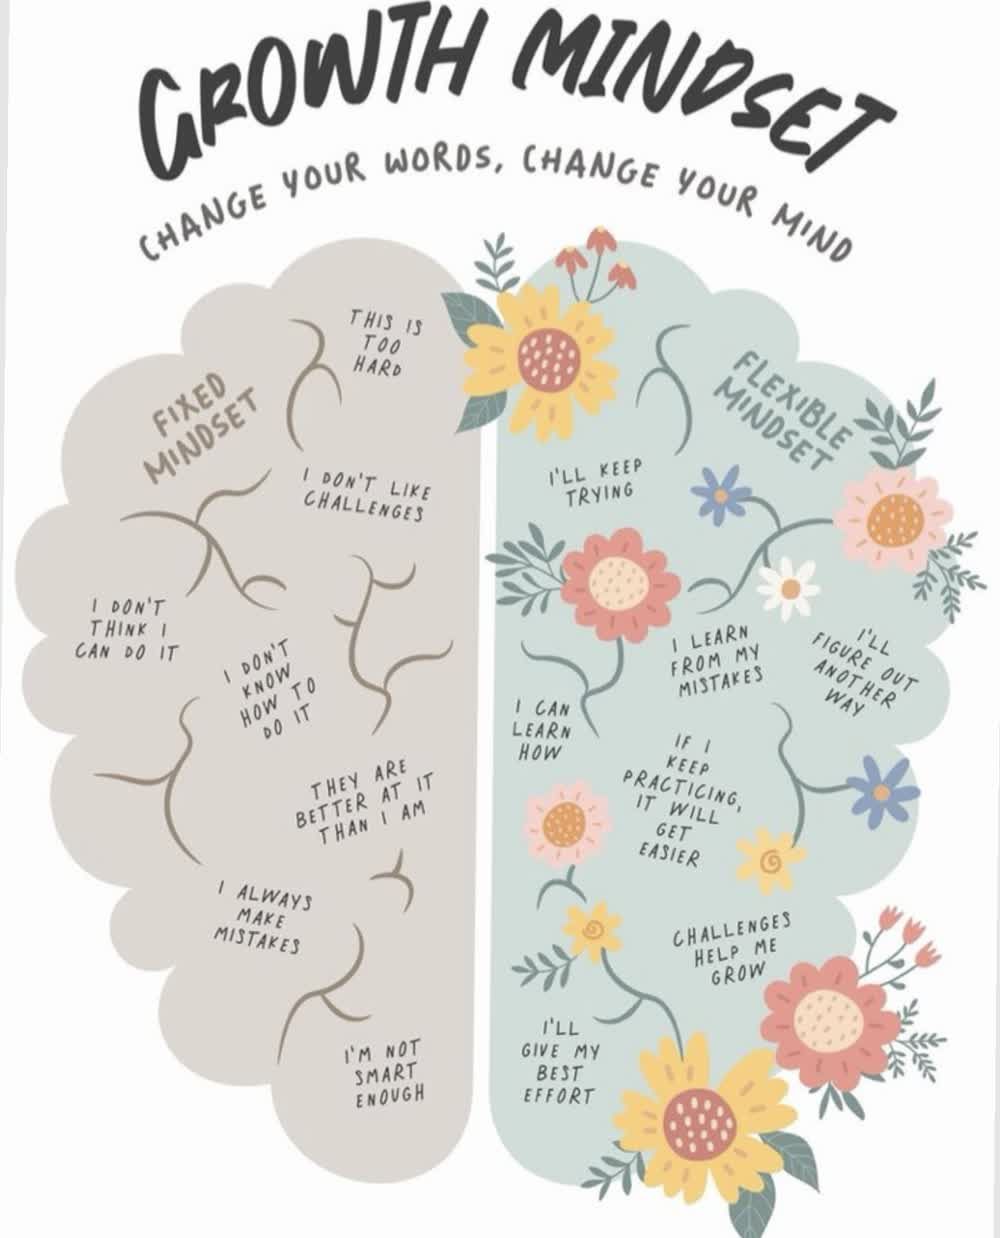 GROWTH MINDSET
CHANGE YOUR WORDS, CHANGE YOUR MIND
FIXED
MINDSET
THIS IS
TOO
HARD
I DON'T LIKE
CHALLENGES
I DON'T
THINK I
CAN DO IT
I DON'T
KNOW
HOW TO
DO IT
THEY ARE
BETTER AT IT
THAN I AM
I ALWAYS
MAKE
MISTAKES
I'M NOT
SMART
ENOUGH
FLEXIBLE
MINDSET
I'LL KEEP
TRYING
I LEARN
FROM MY
MISTAKES
I'LL
FIGURE OUT
ANOTHER
WAY
I CAN
LEARN
HOW
IF I
KEEP
PRACTICING,
IT WILL
GET
EASIER
CHALLENGES
HELP ME
GROW
I'LL
GIVE MY
BEST
EFFORT